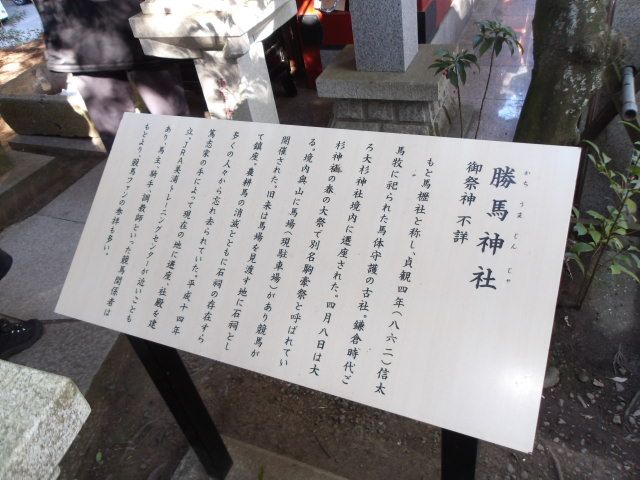 勝馬神社
かちうまじんじゃ
御祭神 不詳
もと馬櫪社と称し、貞観四年(八六二)信太
馬牧に祀られた馬体守護の古社。鎌倉時代ご
ろ大杉神社境内に遷座された。四月八日は大
杉神
の春の大祭で別名駒
祭と呼ばれてい
る。境内奥山に馬場(現駐車場)があり競馬が
開催された。旧来は馬場を見渡す地に石祠とし
て鎮座。農耕馬の消滅とともに石祠の存在すら
多くの人から忘れ去られていた。平成十四年
篤志家の手によって現在の地に遷座。社殿を建
立。JRA美浦トレーニングセンターが近いことも
あり、馬主、騎手、調教師といった競馬関係者は
もとより競馬ファンの参拝も多い。